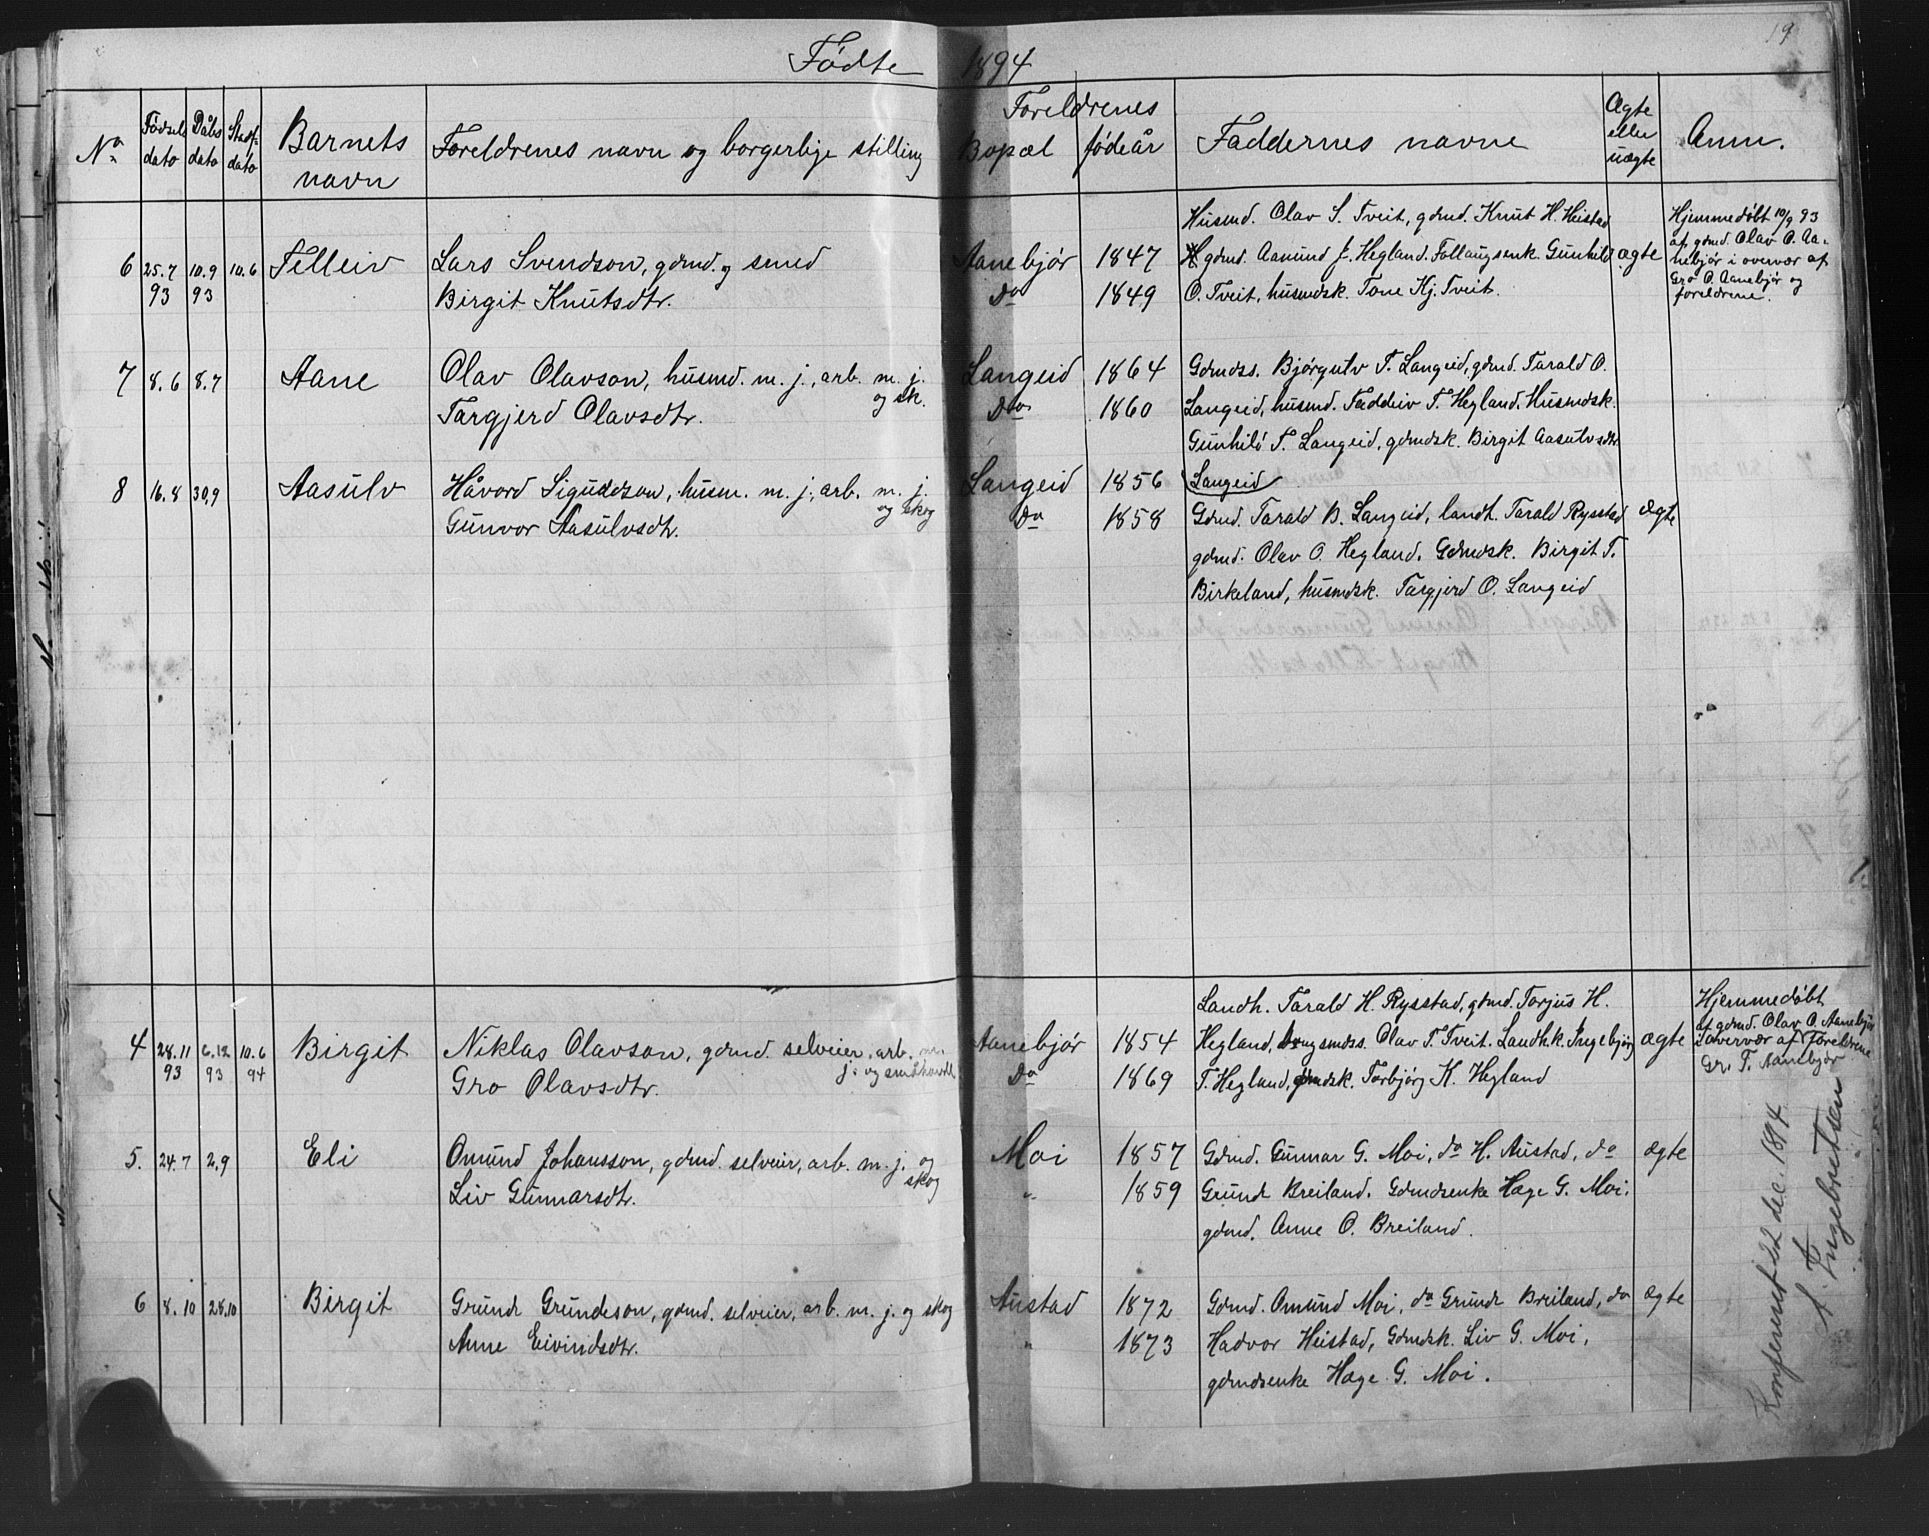 19
Fødte 1894
No.
Fødsels dato
Dåbs dato
Stadf. dato
Barnets navn
Foreldrenes navn og borgerlige stilling
Foreldrenes
Bopæl
fødeår
Faddernes navne
Ægte eller uægte
Anm.
6 25.7 93 10.9 93 10.6 Telleiv
Lars Svendson, gdmd. og smed
Birgit Knutsdtr.
Aanebjør 1847
Do 1849
Husmd. Olav S. Tveit, gdmd. Knut H. Heistad
gdmd. Aamund J. Hegland. Follaugsenk. Gunhild
O. Tveit, husmdsk. Tone Kj. Tveit.
ægte
Hjemmedøbt 10/9 93
af gdmd. Olav O. Aa-
nebjør i overvær af
Gro O. Aanebjør og
foreldrene.
7 8.6 8.7 Aane
Olav Olavson, husmd. m. j., arb. m. j.
og sk.
Targjerd Olavsdtr.
Langeid 1864
Do 1860
Gdmdss. Bjørgulv T. Langeid, gdmd. Tarald O.
Langeid, husmd. Taddeiv T. Hegland. Husmdsk.
Gunhild T. Langeid, gdmdsk. Birgit Aasulvsdtr.
Langeid
8 16.8 30.9 Aasulv
Håvord Siguddson, husm. m. j., arb. m. j.
og skog
Gunvor Aasulvsdtr.
Langeid 1856
Do 1858
Gdmd. Tarald B. Langeid, landh. Tarald Rysstad
gdmd. Olav O. Hegland. Gdmdsk. Birgit T.
Birkeland, husmdsk. Targjerd O. Langeid
ægte
4 28.11 93 6.12 93 10.6 94 Birgit
Niklas Olavson, gdmd. selveier, arb. m.
j. og småhandl
Gro Olavsdtr.
Aanebjør 1854
Do 1869
Landh. Tarald H. Rysstad, gdmd. Torjus H.
Hegland, Olav T. Tveit. Landhk. Ingebjørg
T. Hegland, gdmdsk. Torbjørg K. Hegland
ægte
Hjemmedøbt
af gdmd. Olav O. Aanebjør
i overvær af foreldrene
Gr. T. Aanebjør
5. 24.7 2.9 Eli
Omund Johansson, gdmd. selveier, arb. m. j. og
skog
Liv Gunnarsdtr.
Moi 1857
" 1859
Gdmd. Gunnar G. Moi, do H. Austad, do
Grunde Breiland. Gdmdsenke Hæge G. Moi.
gdmd. Anne O. Breiland.
ægte
6 8.10 28.10 Birgit
Grunde Grundeson, gdmd. selveier, arb. m. j. og skog
Anne Eivindsdtr.
Austad 1872
" 1873
Gdmd. Omund Moi, do Grunde Breiland, do
Hadvor Heistad, Gdmdsk. Liv G. Moi,
gdmdsenke Hæge G. Moi.
ægte
Konfereret 22 dec. 1894
A. Ingebretsen